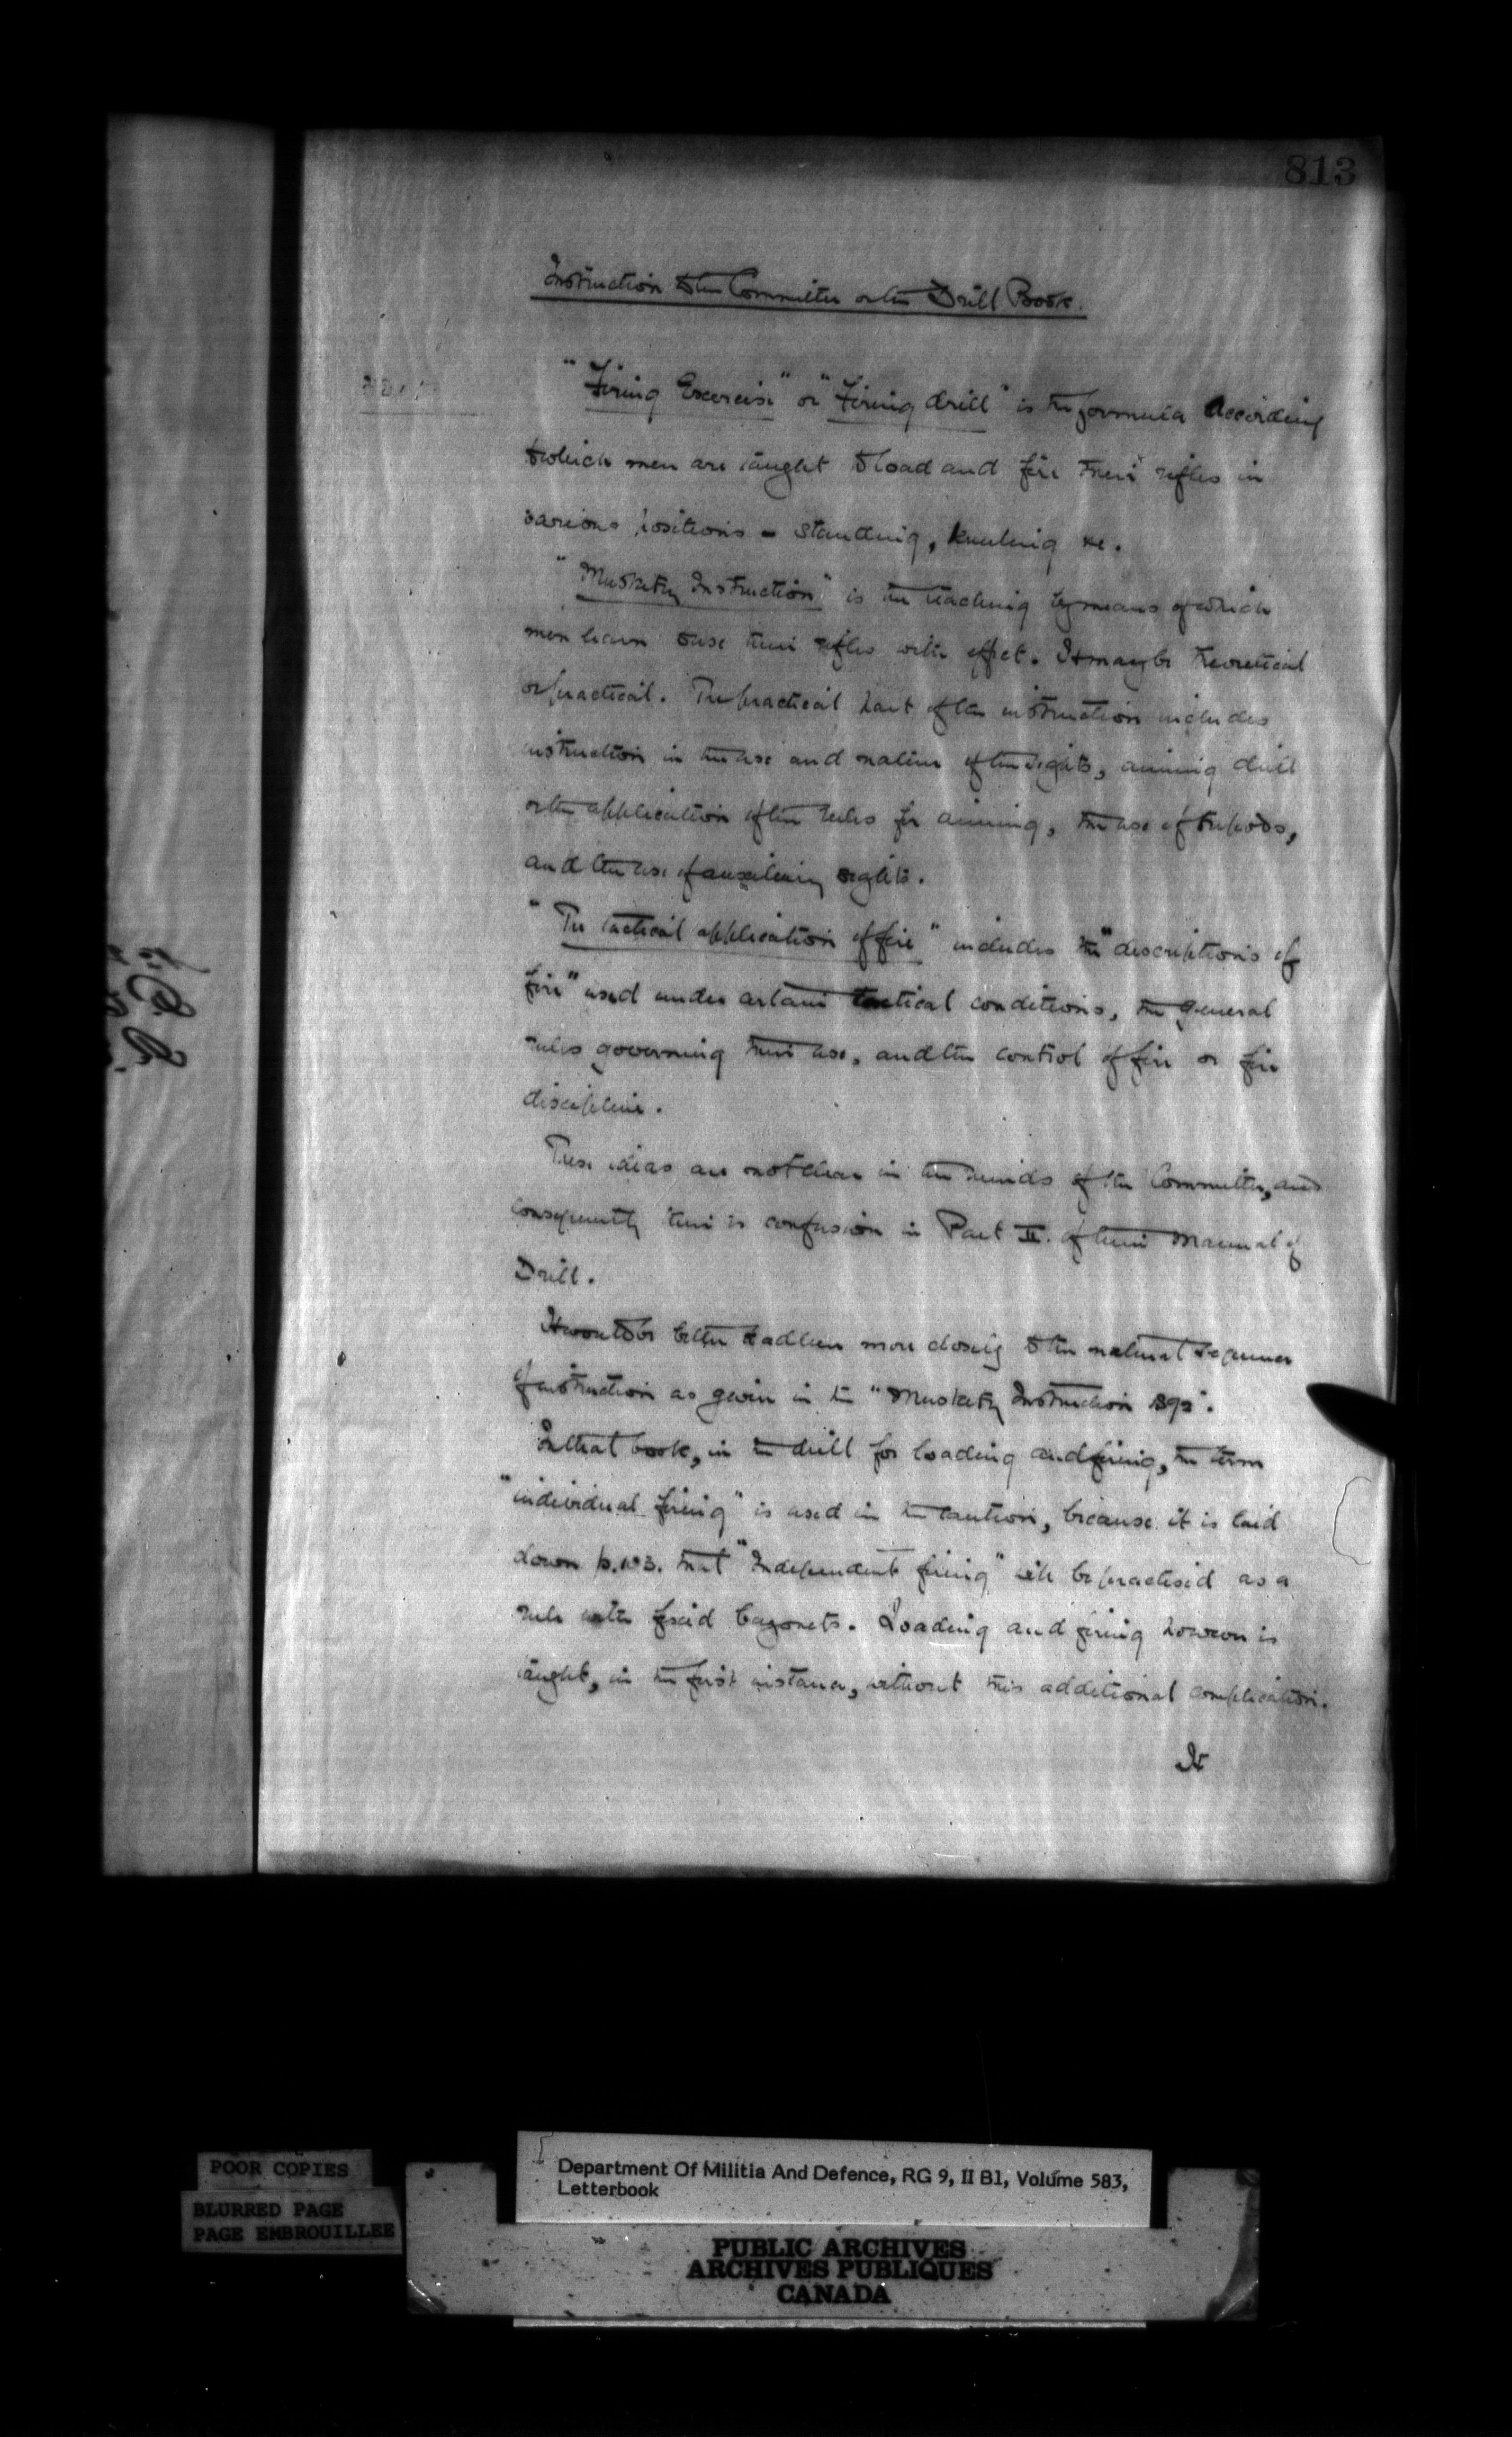 813
Instruction to the Committee on the Drill Book.
"Firing Exercise" or "Firing drill" is the formula according
to which men are taught to load and fire their rifles in
various positions - standing, kneeling &c.
"Musketry Instruction" is the teaching by means of which
men learn to use their rifles with effect. It may be theoretical
or practical. The practical part of the instruction includes
instruction in the use and nature of the sights, aiming drill
or the application of the rules for aiming, the use of tripods,
and the use of auxiliary sights.
"The tactical application of fire" includes the "descriptions of
fire" used under certain tactical conditions, the general
rules governing their use, and the control of fire or fire
discipline.
These ideas are not clear in the minds of the Committee, and
consequently there is confusion in Part II. of their Manual of
Drill.
It would be better to adhere more closely to the natural sequence
of instruction as given in the "Musketry Instruction 1892".
In that book, in the drill for loading and firing, the term
"individual firing" is used in the caution, because it is laid
down p. 103. that "Independent firing" will be practised as a
rule with fixed bayonets. Loading and firing however is
taught, in the first instance, without this additional complication.
It
POOR COPIES
BLURRED PAGE
PAGE EMBROUILLEE
Department Of Militia And Defence, RG 9, II B1, Volume 583,
Letterbook
PUBLIC ARCHIVES
ARCHIVES PUBLIQUES
CANADA